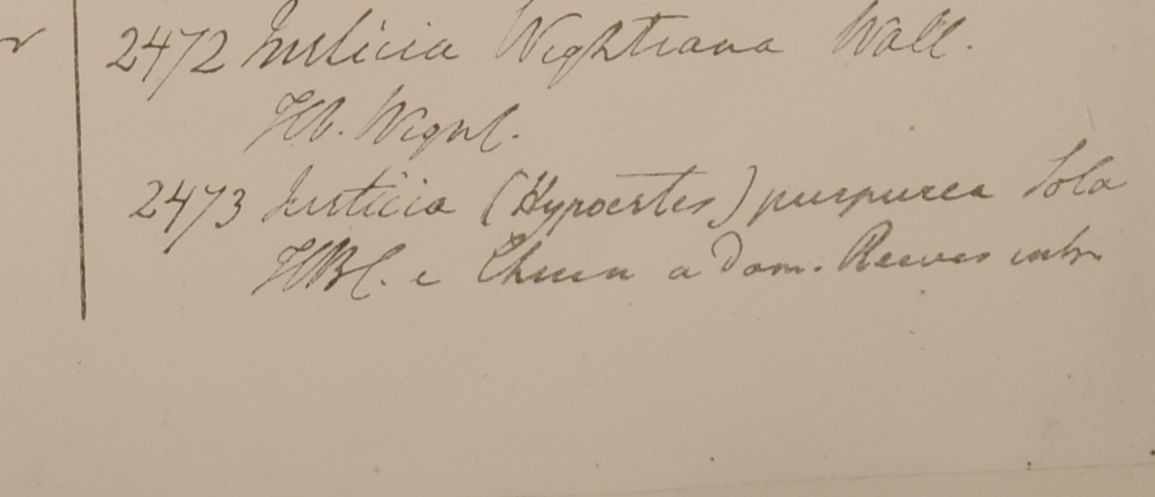 2472 Justicia Wightiana Wall.
Hb. Wight.
2473 Justicia (Hypoestes) purpurea Sola
HBC. e China a Dom. Reeves intr